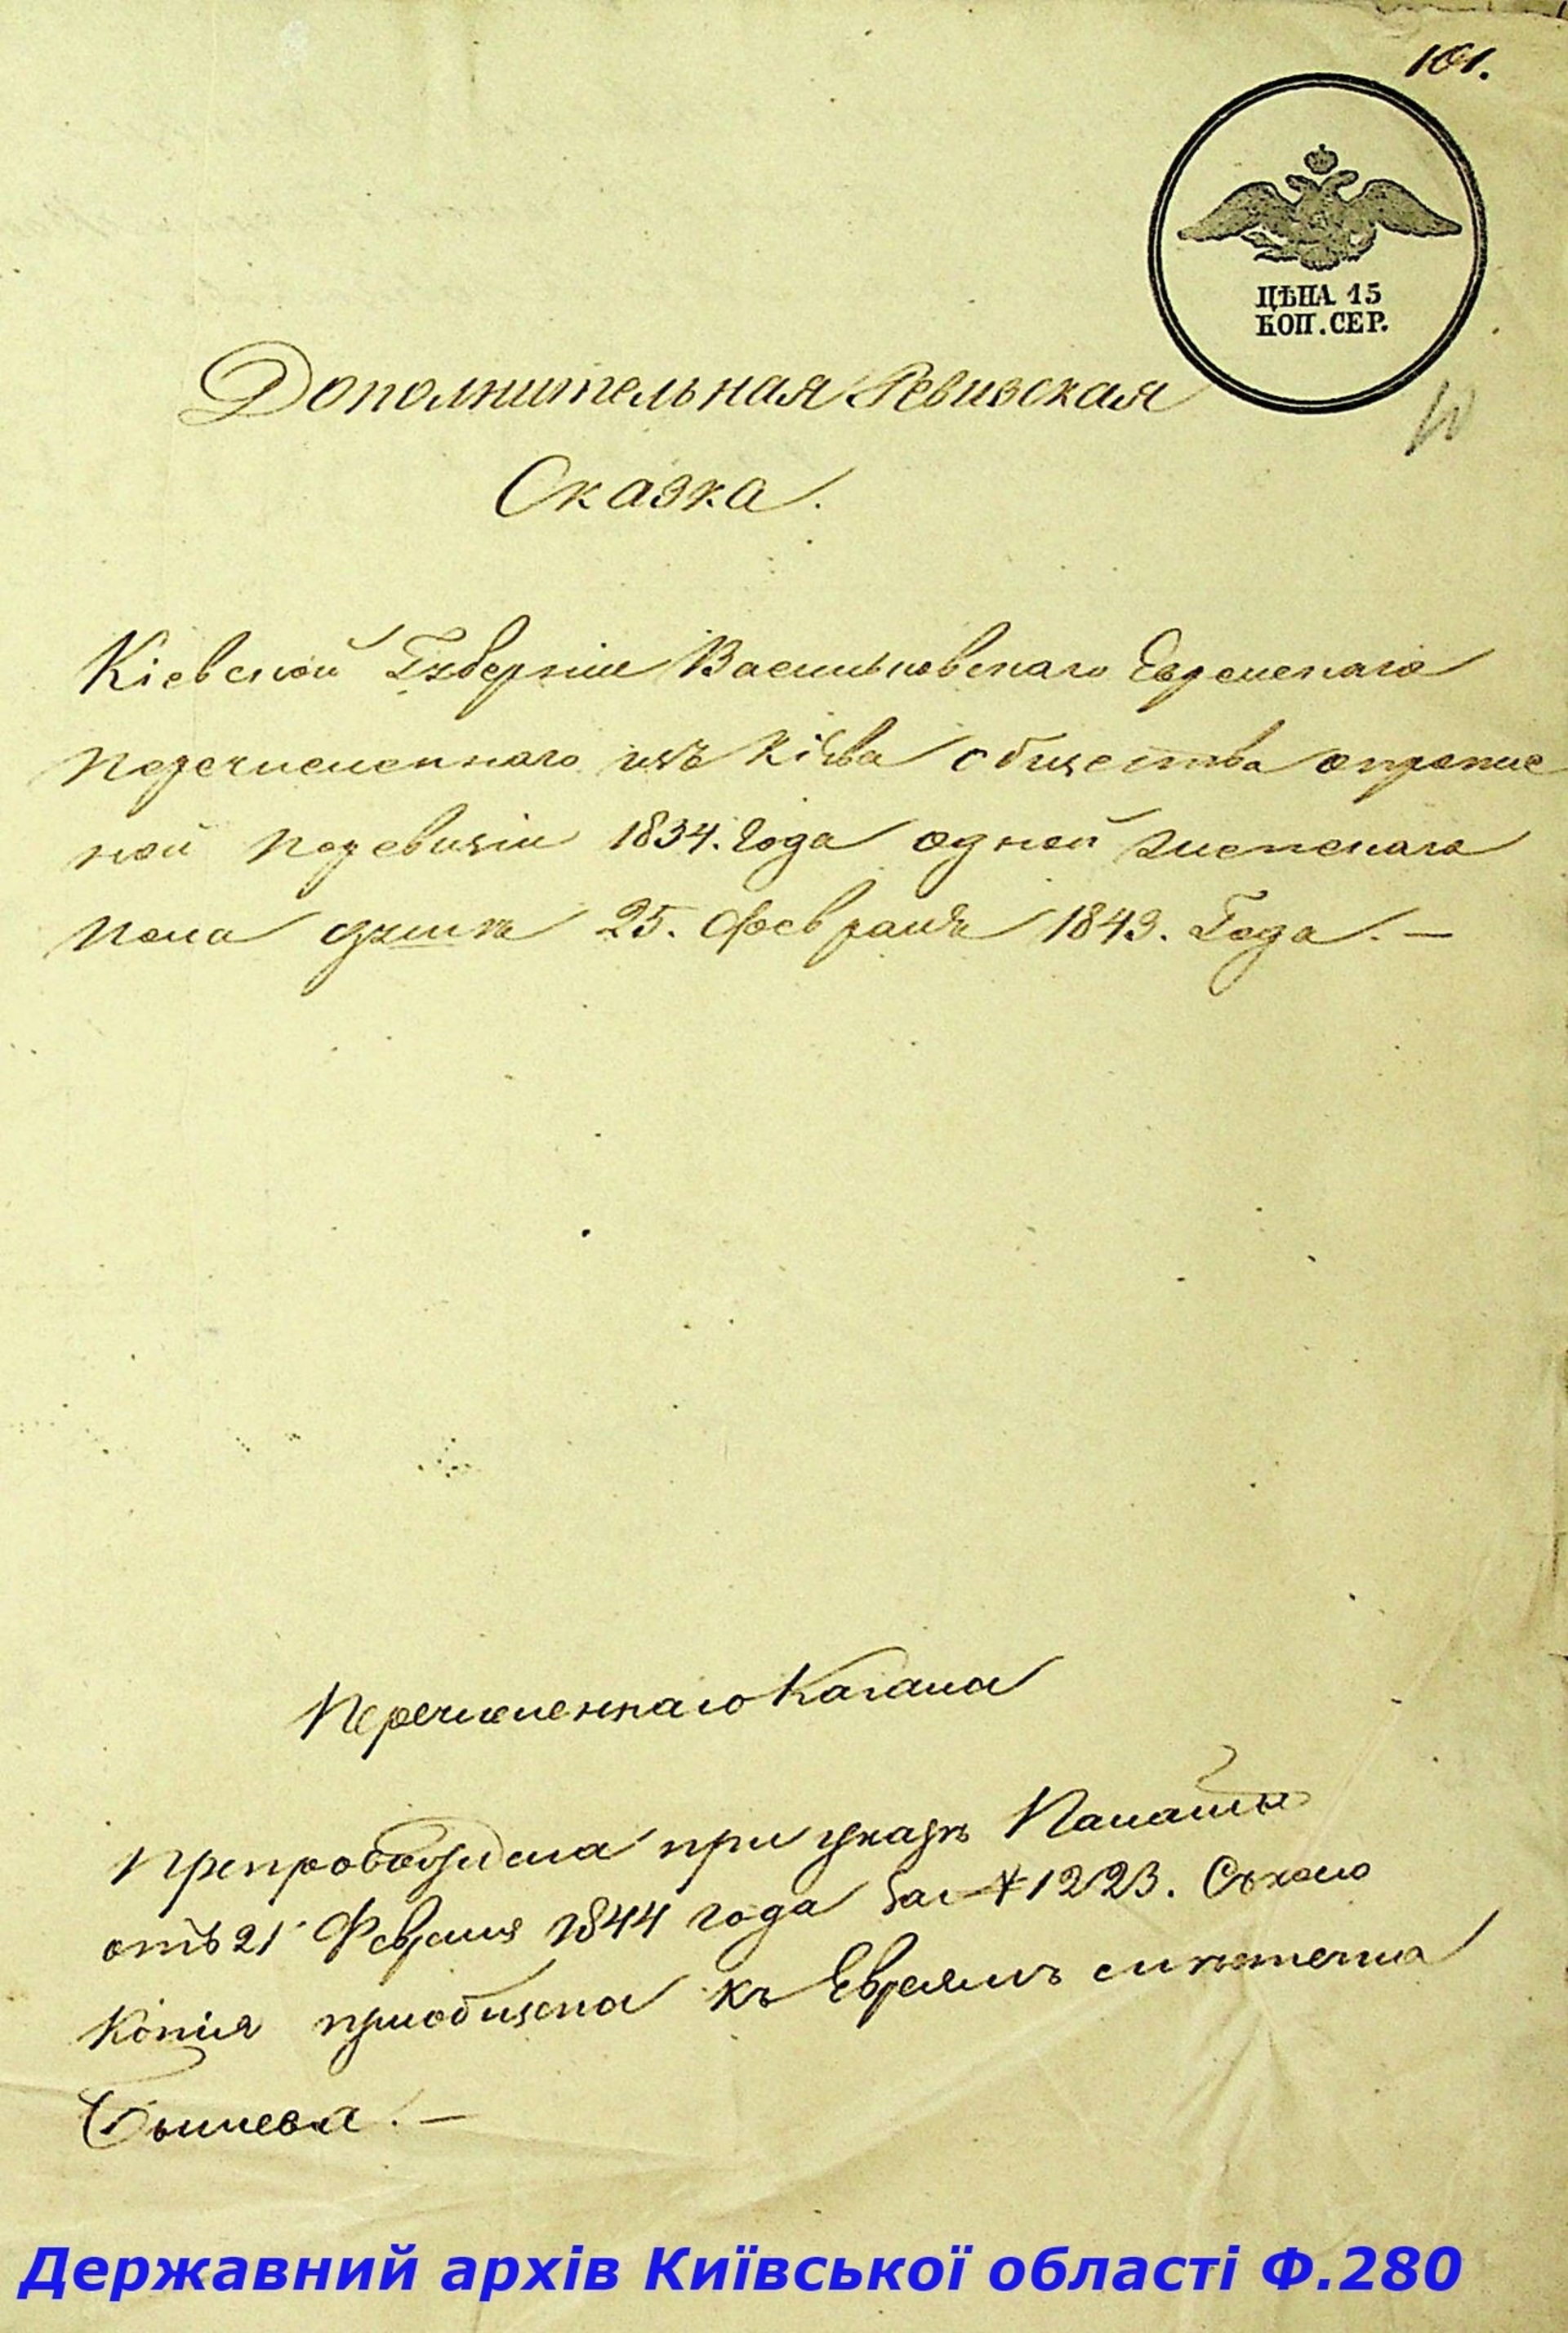 101.
ЦѢНА 15
КОП. СЕР.
10
Дополнительная Ревизская
Сказка.
Кіевской Губерніи Васильковскаго Еврейскаго
перечисленнаго изъ Кіева общества опропис
ной поревизіи 1834. года одной женскаго
пола душѣ 25. февраля 1843. Года. —
Перечисленнаго Кагала
Препровождена при указѣ Палаты
отъ 21 Февраля 1844 года за № 1223. Съ коего
копія приобщена къ Евреямъ мѣстечка
Бышева. —
Державний архів Київської області Ф.280